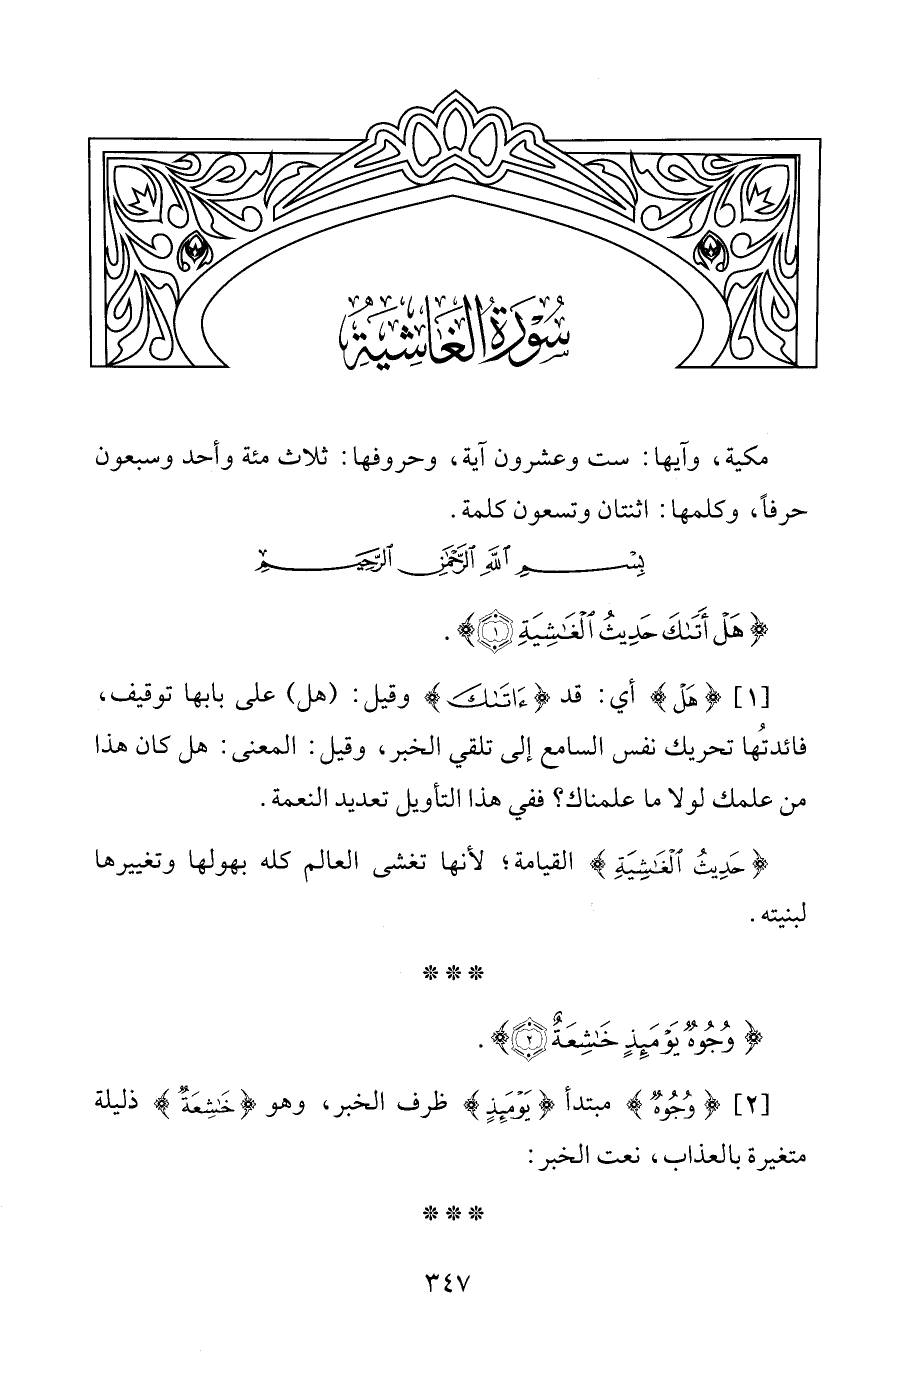 سُورَةُ الغَاشِيَةِ
مكية، وآيها: ست وعشرون آية، وحروفها: ثلاث مئة وأحد وسبعون
حرفاً، وكلمها: اثنتان وتسعون كلمة.
بِسْمِ ٱللَّهِ ٱلرَّحْمَٰنِ ٱلرَّحِيمِ
﴿هَلْ أَتَىٰكَ حَدِيثُ ٱلْغَٰشِيَةِ ١﴾.
[١] ﴿هَلْ﴾ أي: قد ﴿ءَاتَىٰكَ﴾ وقيل: (هل) على بابها توقيف،
فائدتُها تحريك نفس السامع إلى تلقي الخبر، وقيل: المعنى: هل كان هذا
من علمك لولا ما علمناك؟ ففي هذا التأويل تعديد النعمة.
﴿حَدِيثُ ٱلْغَٰشِيَةِ﴾ القيامة؛ لأنها تغشى العالم كله بهولها وتغييرها
لبنيته.
* * *
﴿وُجُوهٌ يَوْمَئِذٍ خَٰشِعَةٌ ٢﴾.
[٢] ﴿وُجُوهٌ﴾ مبتدأ ﴿يَوْمَئِذٍ﴾ ظرف الخبر، وهو ﴿خَٰشِعَةٌ﴾ ذليلة
متغيرة بالعذاب، نعت الخبر:
* * *
٣٤٧